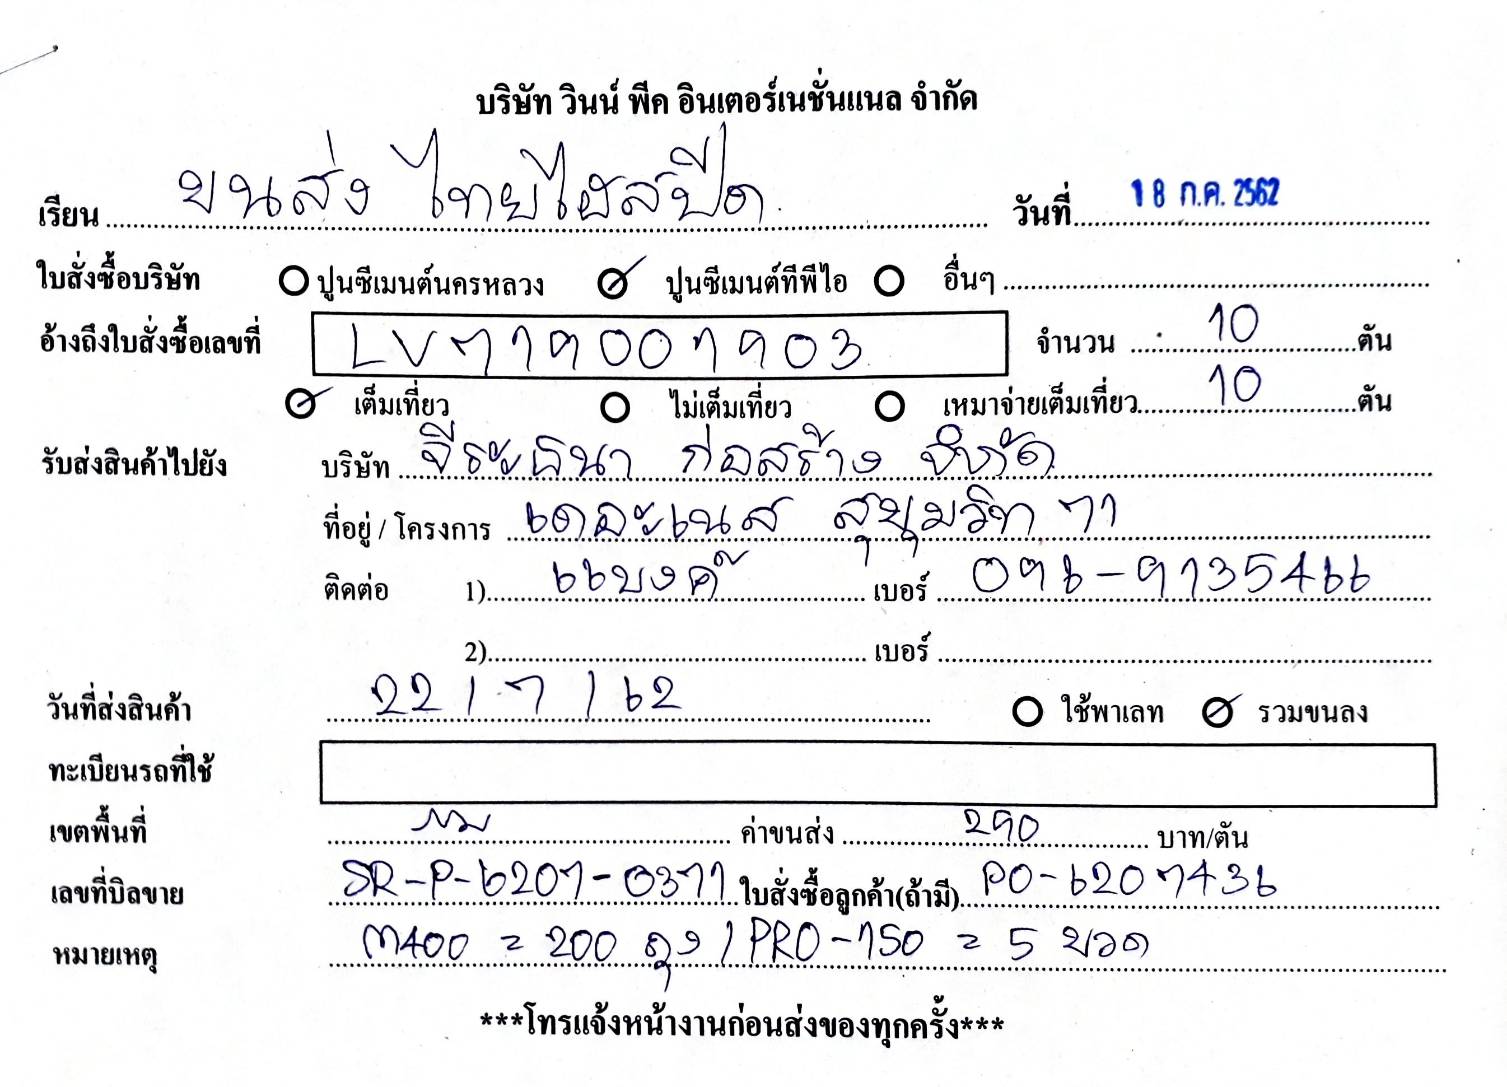 บริษัท วินน์ พีค อินเตอร์เนชั่นแนล จำกัด
เรียน ขนส่ง ไทยไฮสปีด วันที่ 18 ก.ค. 2562
ใบสั่งซื้อบริษัท ปูนซีเมนต์นครหลวง ปูนซีเมนต์ทีพีไอ อื่นๆ
อ้างถึงใบสั่งซื้อเลขที่ จำนวน 10 ตัน
เต็มเที่ยว ไม่เต็มเที่ยว เหมาจ่ายเต็มเที่ยว 10 ตัน
รับส่งสินค้าไปยัง บริษัท ก่อสร้าง จำกัด
ที่อยู่ / โครงการ เดอะเนส สุขุมวิท 71
ติดต่อ 1) แบงค์ เบอร์
2) เบอร์
วันที่ส่งสินค้า 22 / 7 / 62 ใช้พาเลท รวมขนลง
ทะเบียนรถที่ใช้
เขตพื้นที่ ค่าขนส่ง 290 บาท/ตัน
เลขที่บิลขาย SR-P-6207-0371 ใบสั่งซื้อลูกค้า(ถ้ามี) PO-6207436
หมายเหตุ M400 = 200 ถุง / PRO-150 = 5 ขวด
***โทรแจ้งหน้างานก่อนส่งของทุกครั้ง***